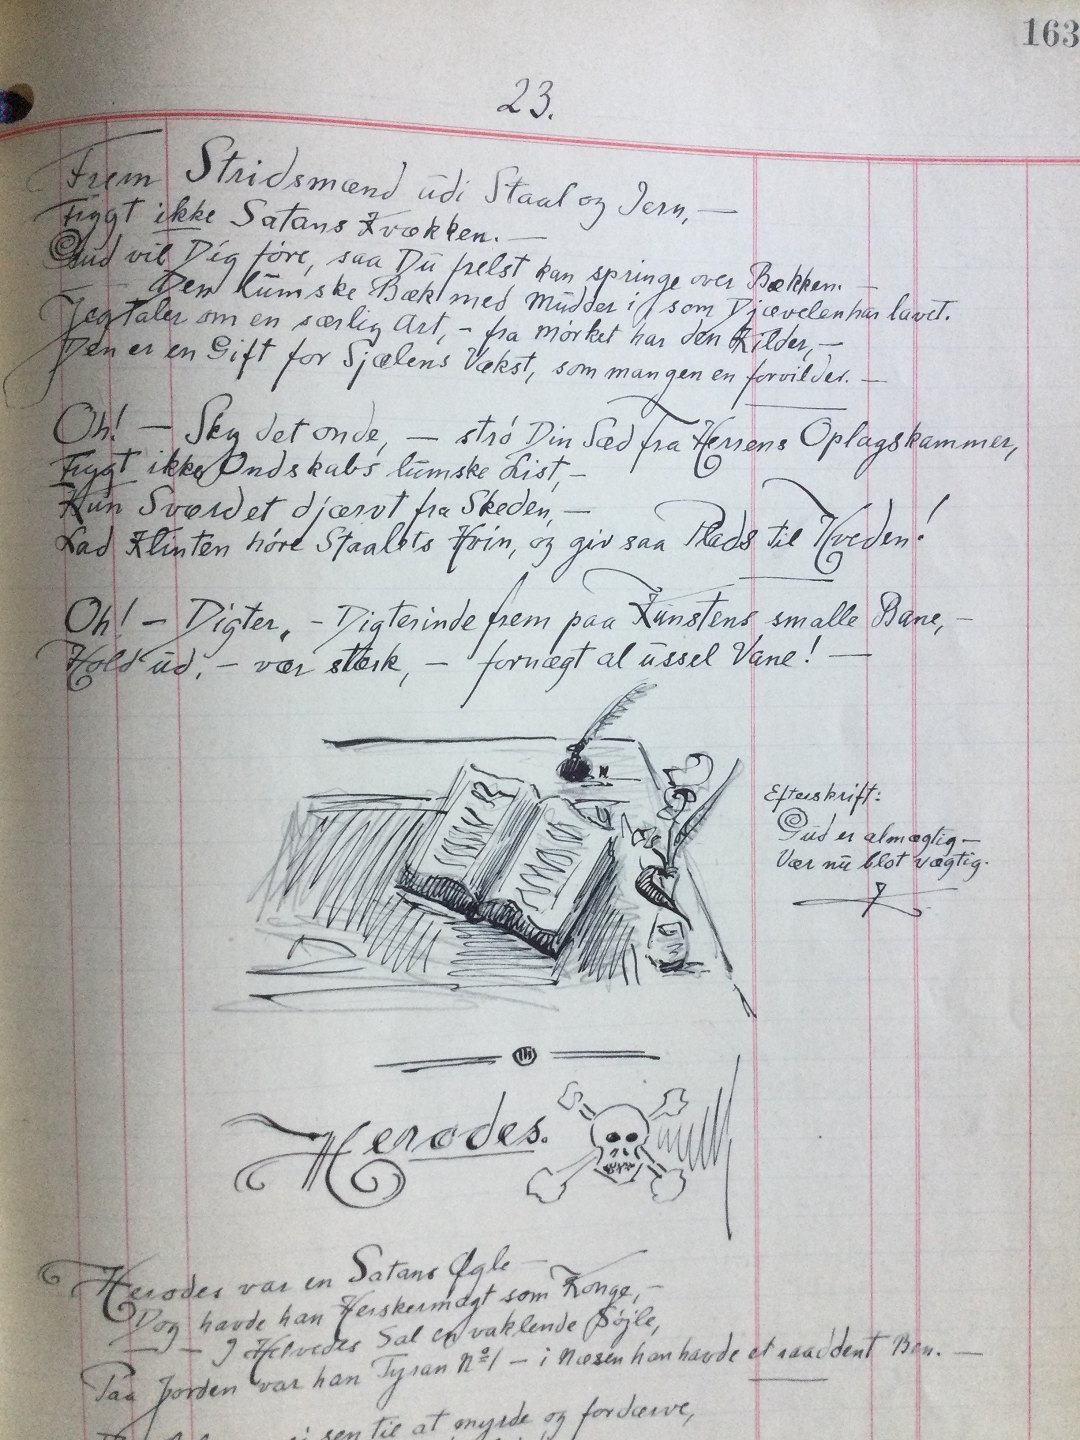 163
23.
Frem Stridsmænd udi Staal og Jern, —
Frygt ikke Satans Kvækken. —
Gud vil Dig føre, saa Du frelst kan springe over Bækken. —
Den lumske Bæk med Mudder i, som Djævelen har lavet.
Jeg taler om en særlig Art, – fra Mørket har den Kilder, –
Den er en Gift for Sjælens Vækst, som mangen en forvilder. —
Oh! — Sky det onde, — strø Din Sæd fra Herrens Oplagskammer,
Frygt ikke Ondskabs lumske List, –
Hun Sværdet djærvt fra Skeden, —
Lad Klinten høre Staalets Hvin, og giv saa Plads til Hveden!
Oh! — Digter, – Digterinde frem paa Kunstens smalle Bane, –
Hold ud, – vær stærk, – fornægt al ussel Vane! —
Efterskrift:
Gud er almægtig —
Vær nu blot vægtig.
Herodes.
Herodes var en Satans Øgle —
Dog havde han Herskermagt som Konge, –
— I Helvedes Sal en vaklende Søjle,
Paa Jorden var han Tyran No 1 — i Næsen han havde et raaddent Ben. —
til at myrde og fordærve,